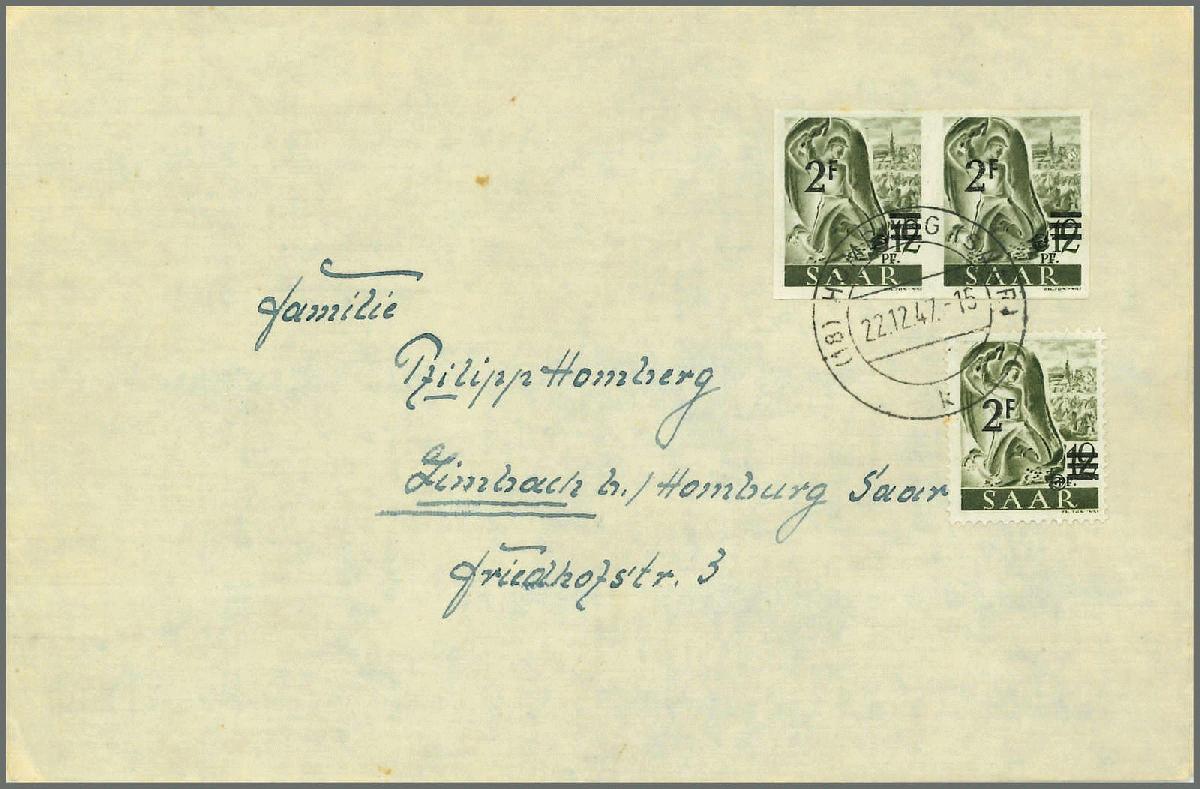 2F 2F
12 12
PF. PF.
SAAR SAAR
(18) HOMBURG (SAAR)
22.12.47.-15
k
2F
12
PF.
SAAR
Familie
Philipp Homberg
Limbach b./Homburg Saar
Friedhofstr. 3